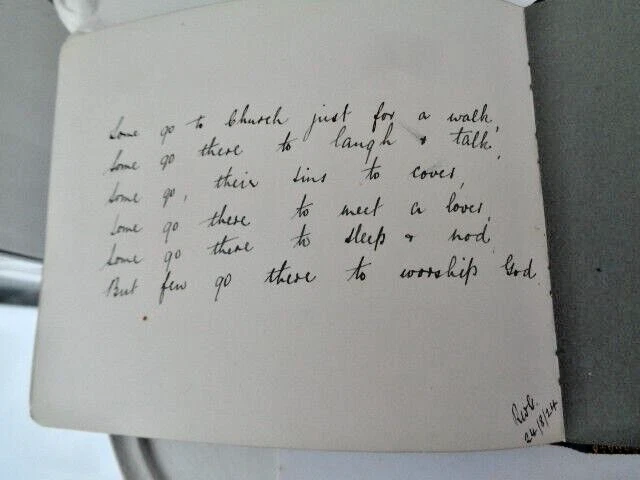 Some go to Church just for a walk,
Some go there to laugh & talk,
Some go, their sins to cover,
Some go there to meet a lover,
Some go there to sleep & nod
But few go there to worship God.
24/8/24